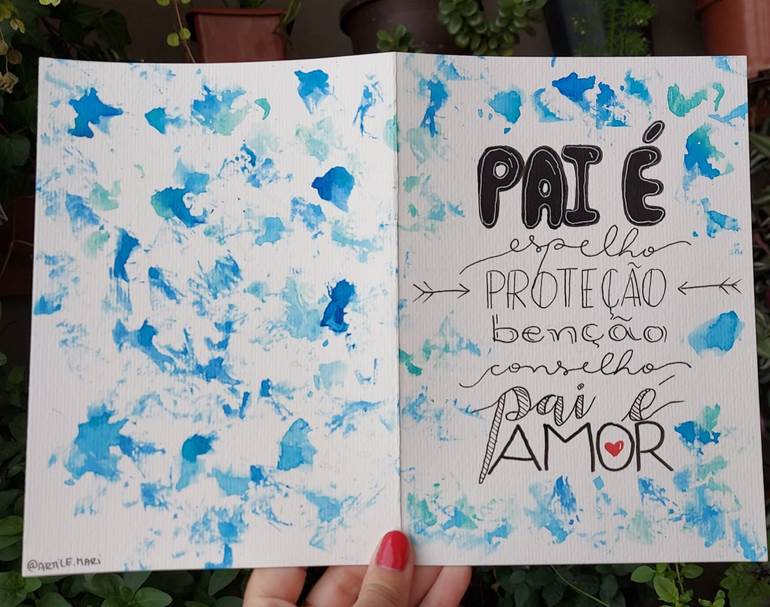 PAI É
espelho
PROTEÇÃO
benção
conselho
pai é
AMOR
@ARTLE.MARi